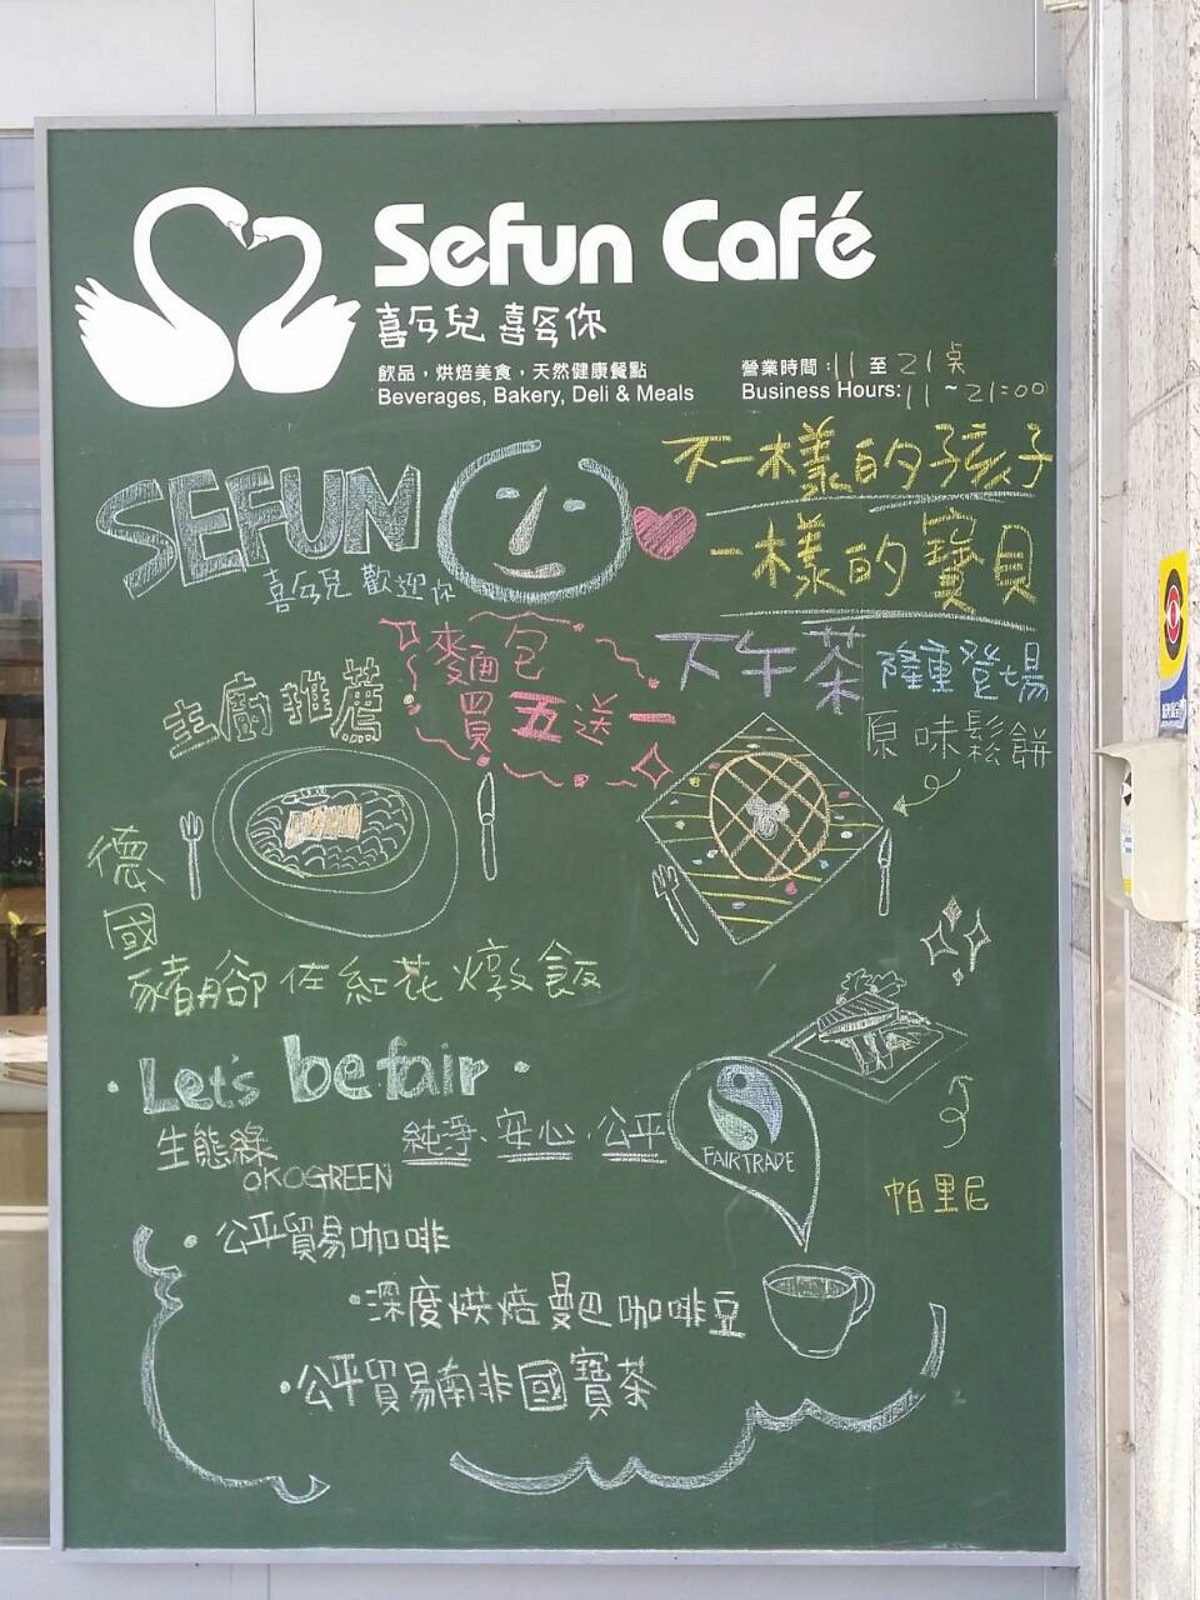 Sefun Café
喜ㄢ兒 喜ㄢ你
飲品，烘焙美食，天然健康餐點
Beverages, Bakery, Deli & Meals
營業時間：11 至 21 點
Business Hours: 11 ~ 21:00
不一樣的孩子
一樣的寶貝
SEFUN
喜ㄢ兒 歡迎你
麵包
買五送一
下午茶 隆重登場
原味鬆餅
主廚推薦
德國
豬腳佐紅花燉飯
Let's be fair
生態綠
OKOGREEN
純淨、安心、公平
FAIRTRADE
帕里尼
公平貿易咖啡
深度烘焙曼巴咖啡豆
公平貿易南非國寶茶